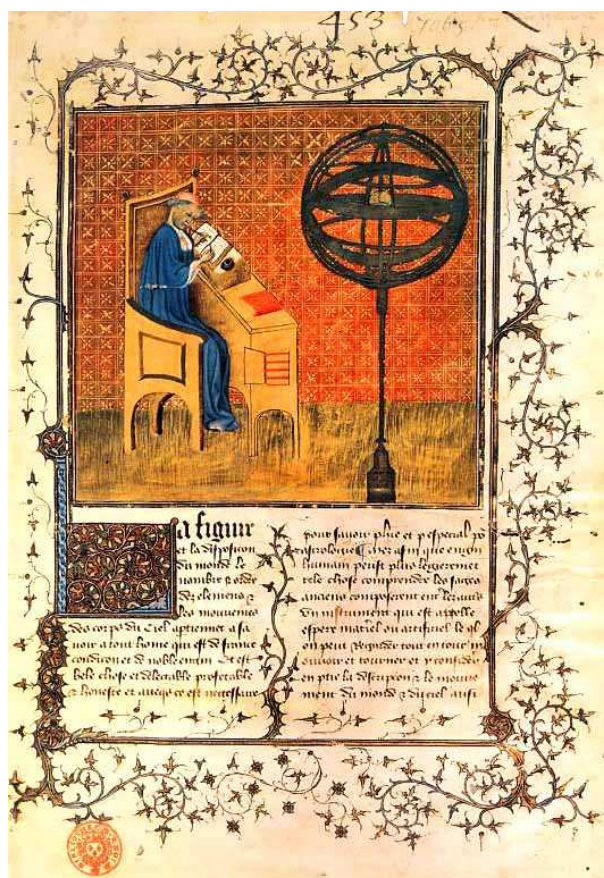 453
7065
La figure
et la disposicon
du monde le
nombre & ordre
des elemens &
les mouvemens
des corps du ciel aptiennet a sa
voir a tout home qui est de france
condicion et de noble engin Et est
bele chose et delectable profetable
& honeste et avecqs ce est necessaire
pour savoir philo et p especial po
astrologie Et afin que engin
humain peust plus legierement
tele chose comprendre les sages
anciens composerent entre les autres
un instrument qui est appelle
espere materiel ou artificiel le ql
on peut regarder tout entour
mouvoir et tourner et y considerer
en ptie la descripcion & le mouve
ment du monde & du ciel aussi